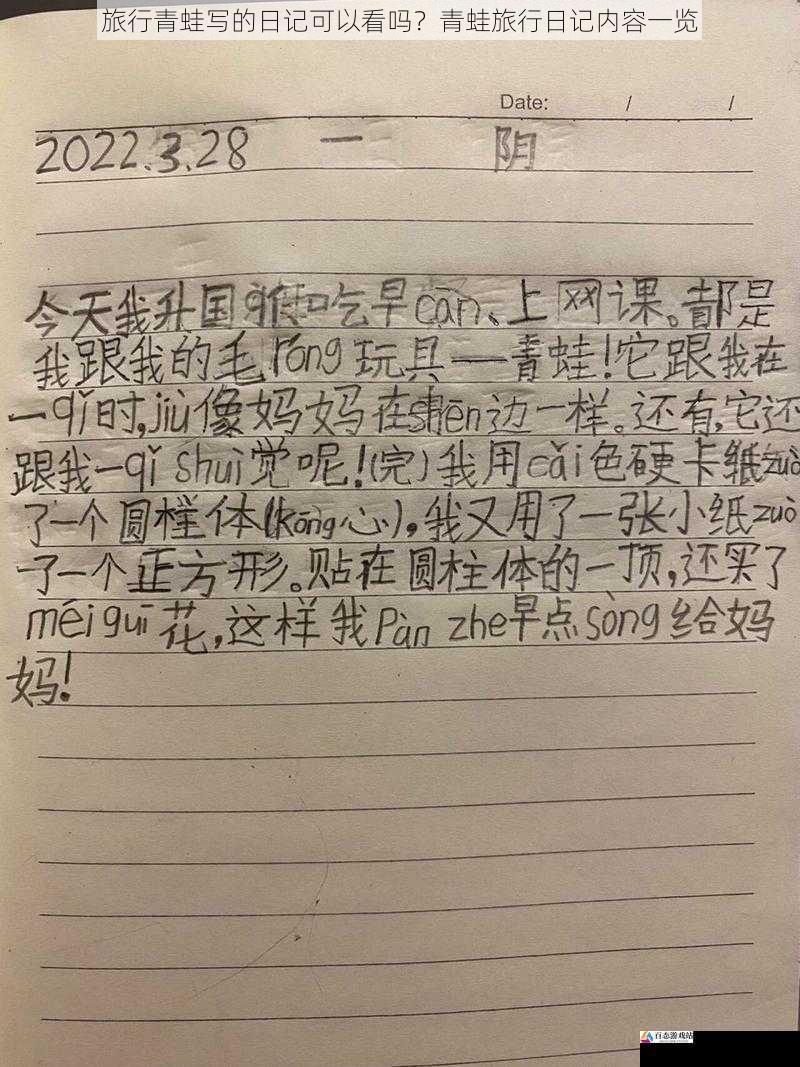 旅行青蛙写的日记可以看吗？青蛙旅行日记内容一览
Date: / /
2022.3.28 一 阴
今天我升国 吃早cān、上网课。都是
我跟我的毛róng玩具——青蛙！它跟我在
一qǐ时,jiù像妈妈在shēn边一样。还有,它还
跟我一qǐ shuì觉呢！(完)我用cǎi色硬卡纸zuò
了一个圆柱体(kōng心),我又用了一张小纸zuò
了一个正方形。贴在圆柱体的一顶,还买了
méi guī花,这样我Pàn zhe早点sòng给妈
妈！
百态游戏站